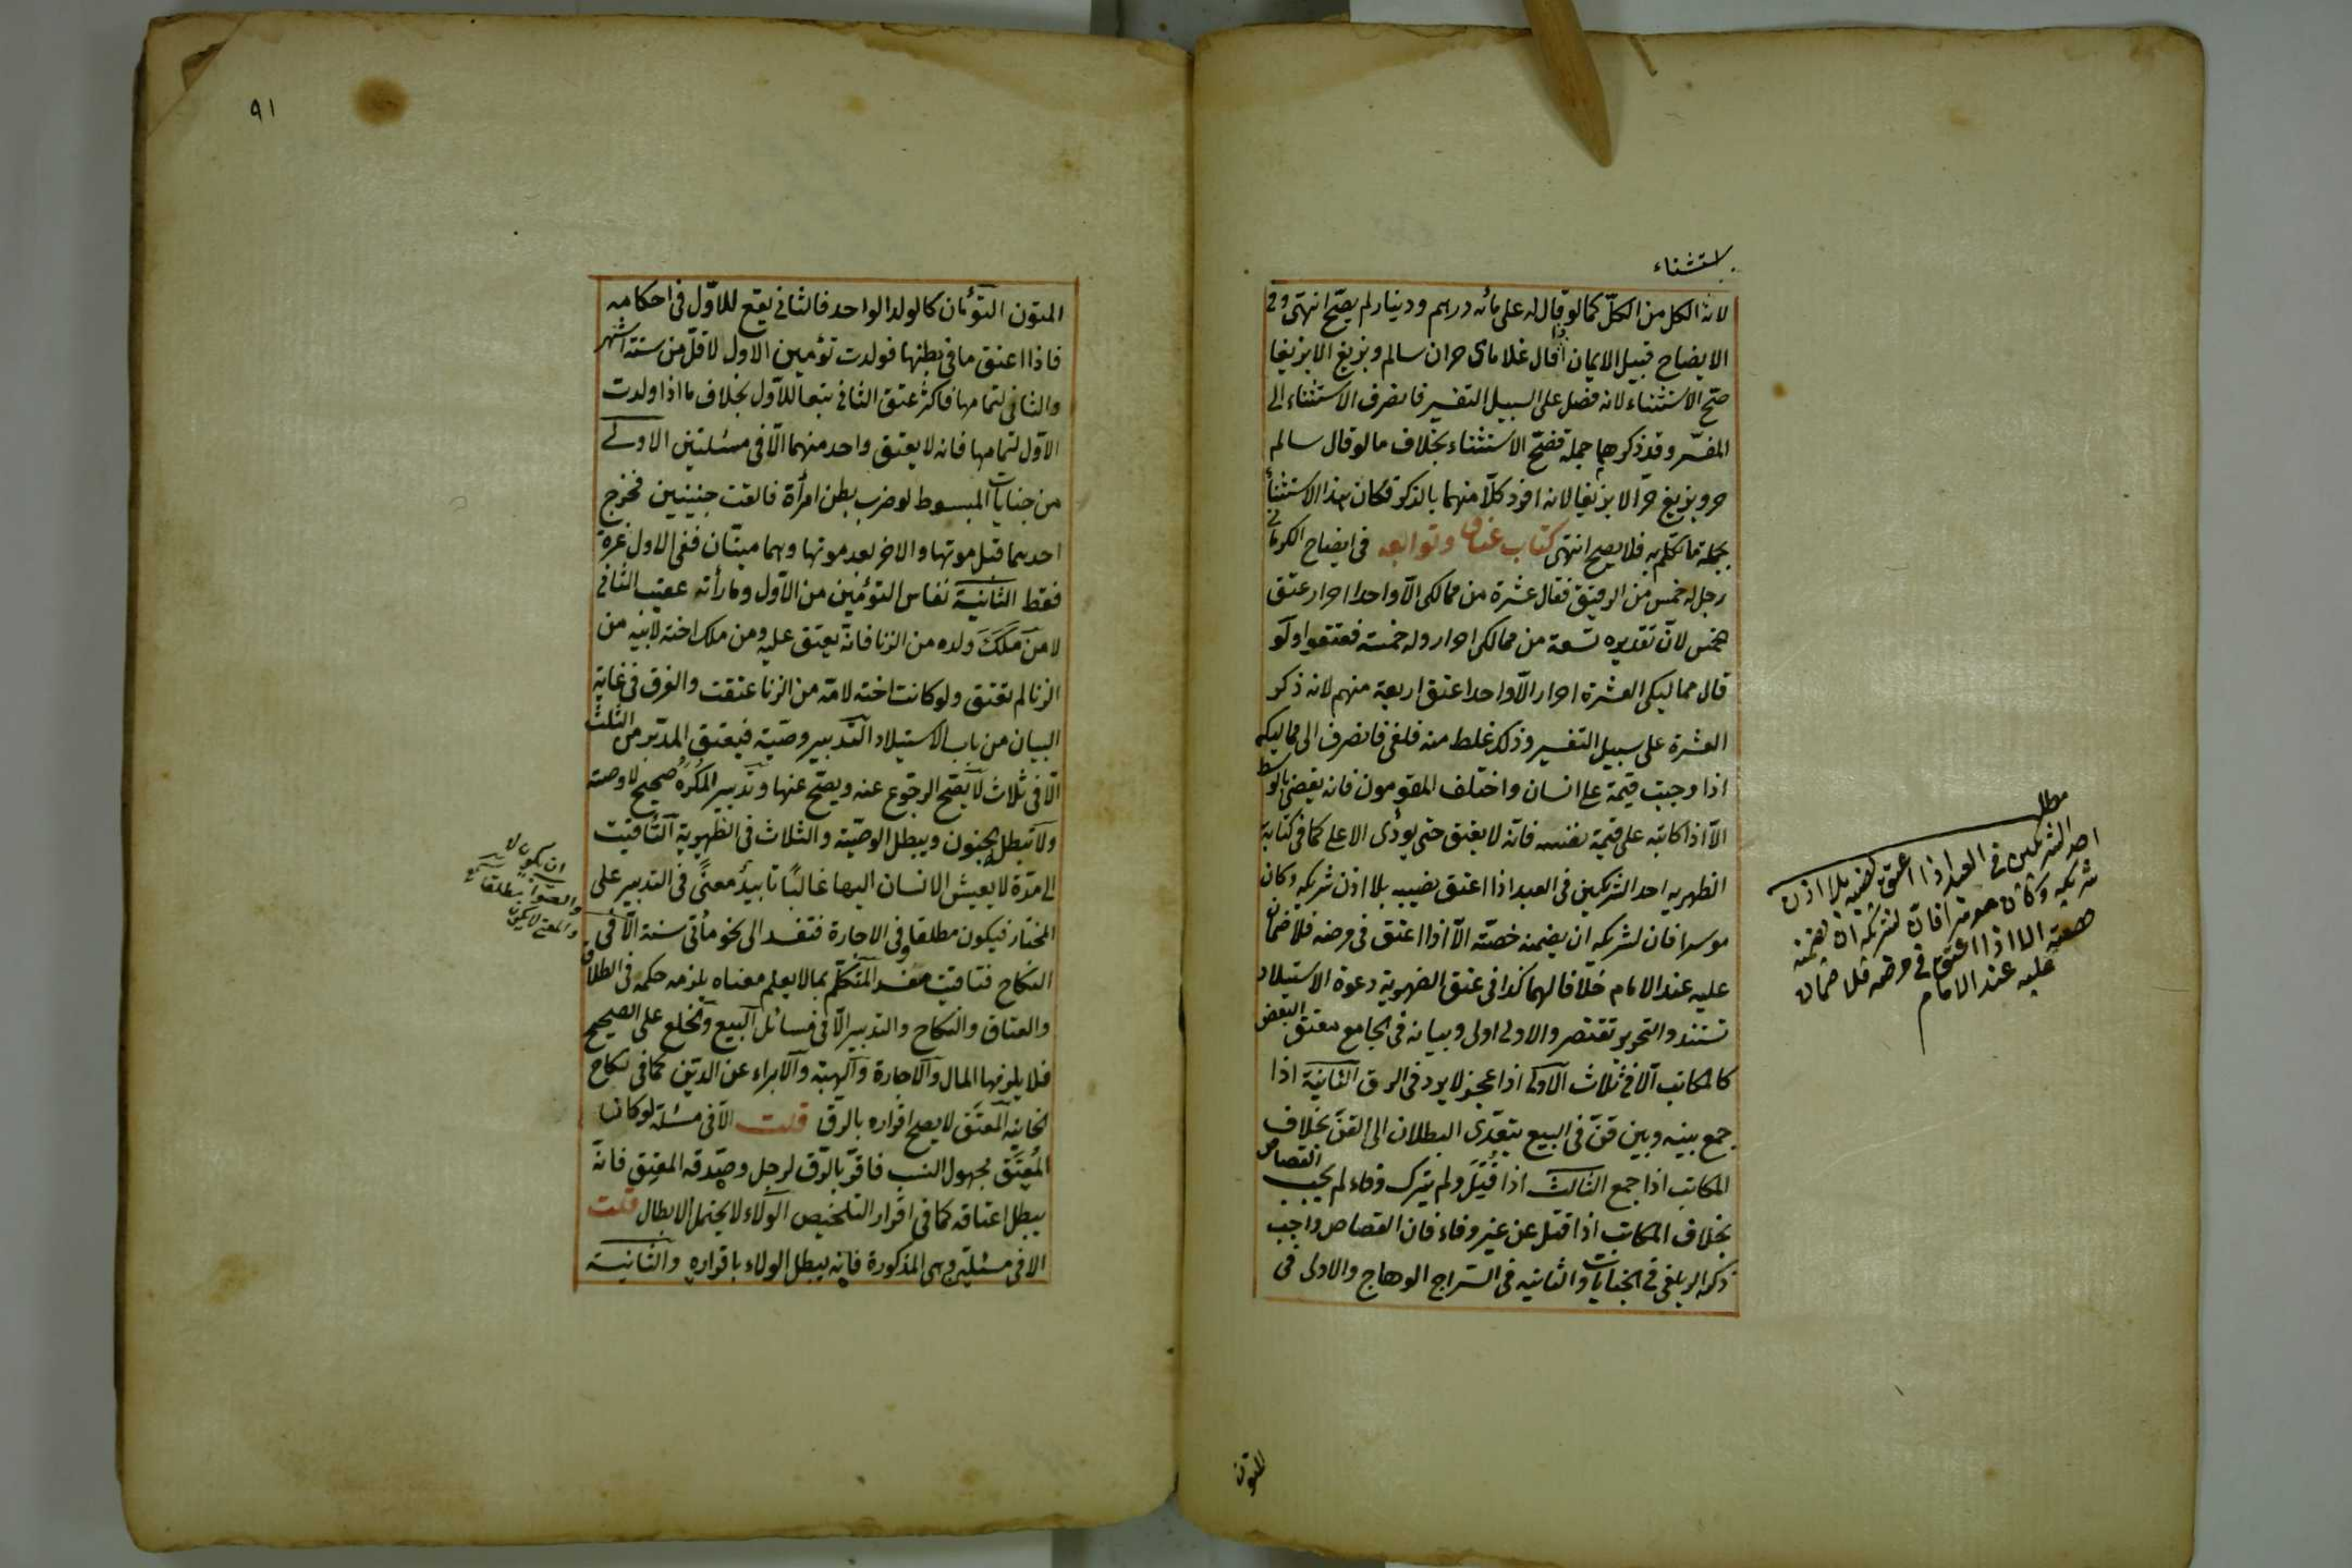 استثناء
لانه الكل من الكلّ كما لو قال له على مائه درهم ودينار لم يصحّ انتهى وفى
الايضاح قبيل الايمان اذا قال غلاماى حران سالم وبزيغ الا بزيغا
صحّ الاستثناء لانه فصل على السبيل التفسير فانصرف الاستثناء الى
المفسّر وقد ذكرهما جملة فصحّ الاستثناء بخلاف ما لو قال سالم
حر وبزيغ حرّ الا بزيغا لانه افرد كلّا منهما بالذكر فكان هذا الاستثنأ
بجملة ما تكلّم به فلا يصح انتهى كتاب عتاق وتوابعه فى ايضاح الكرمانى
رجل له خمس من الرقيق فقال عشرة من ممالكى الّا واحدا احرار عتق
خمس لانّ تقديره تسعة من ممالكى احرار وله خمسة فعتقوا ولو
قال مماليكى العشرة احرار الّا واحدا عتق اربعة منهم لانه ذكر
العشرة على سبيل التفسير وذلك غلط منه فلغى فانصرف الى مماليكه
اذا وجبت قيمة على انسان واختلف المقومون فانه يقضى بالوسط
الّا اذا كاتبه على قيمة نفسه فانّه لا يعتق حتى يؤدى الاعلى كما فى كتابة
الظهريه احد الشريكين فى العبد اذا اعتق نصيبه بلا اذن شريكه وكان
موسرا فان لشريكه ان يضمنه حصّته الّا اذا اعتق فى مرضه فلا ضمان
عليه عند الامام خلافا لهما كذا فى عتق الظهرية دعوة الاستيلاد
تستند والتحرير تقتصر والاولى اولى وبيانه فى الجامع معتق البعض
كالمكاتب الّا فى ثلاث الاولى اذا عجز لا يرد فى الرق الثانية اذا
جمع بينه وبين قنّ فى البيع يتعدّى البطلان الى القن بخلاف
المكاتب اذا جمع الثالث اذا قُتِلَ ولم يترك وفاء لم يجب القصاص
بخلاف المكاتب اذا قتل عن غير وفاء فان القصاص واجب
ذكره الزيلعى فى الجنايات والثانيه فى السّراج الوهاج والاولى فى
مطلب
احد الشريكين فى العبد اذا اعتق نصيبه بلا اذن
شريكه وكان موسرا فانّ لشريكه ان يضمنه
حصته الا اذا اعتق فى مرضه فلا ضمان
عليه عند الامام
المتون
٩١
المتون التؤمان كالولد الواحد فالثانى يقع للاوّل فى احكامه
فاذا اعتق ما فى بطنها فولدت تؤمين الاول لاقلّ من ستة اشهر
والثانى لتمامها فاكثر عتق الثانى تبعا للاوّل بخلاف ما اذا ولدت
الاوّل لتمامها فانه لا يعتق واحد منهما الّا فى مسئلتين الاولى
من جنايات المبسوط لو ضرب بطن امرأة فالقت جنينين فخرج
احدهما قبل موتها والاخر بعد موتها وهما ميتان ففى الاول غرة
فقط الثانية نفاس التؤمين من الاوّل وما رأته عقيب الثانى
لا من مَلَكَ ولده من الزنا فانّه يعتق عليه ومن ملك اخته لابيه من
الزنا لم تعتق ولو كانت اخته لامّه من الزنا عتقت والفرق فى غاية
البيان من باب الاستيلاد التّدبير وصيّة فيعتق المدبّر من الثلث
الّا فى ثلاث لا يصّح الرجوع عنه ويصّح عنها وتدبير المكرَه صحيح لا وصيته
ولا يبطل الجنون ويبطل الوصيّة والثلاث فى الظهرية التّاقيت
الى مدّة لا يعيش الانسان اليها غالبًا تابيدٌ معنًى فى التدبير على
المختار فيكون مطلقا وفى الاجارة فتفسد الى نحو مأتى سنة الّا فى
النكاح فتاقيت مفسد المتكلّم بما لا يعلم معناه يلزمه حكمه فى الطلاق
والعتاق والنكاح والتدبير الّا فى مسائل البيع والخلع على الصحيح
فلا يلزمها المال والاجارة والهبة والابراء عن الدين كما فى نكاح
الخانيه المعتَق لا يصح اقراره بالرّق قلت الّا فى مسئلة لو كان
المُعتَق مجهول النسب فاقرّ بالرّق لرجل وصدّقه المعتِق فانّه
يبطل اعتاقه كما فى اقرار التلخيص الولاء لا يحتمل الابطال قلت
الا فى مسئلتين وهى المذكورة فانه يبطل الولاء باقراره والثانية